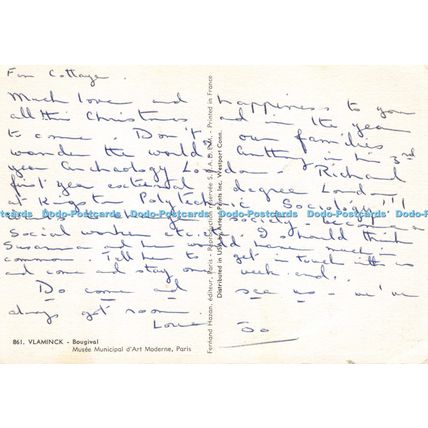 Fir Cottage.
Much love and happiness to you
all this Christmas and in the year
to come. Don't our families
wander the world? Anthony in his 3rd
year Archaeology London. Richard
first year external degree London
at Kingston Polytechnic Sociology. I'll
wants to be a society-become
social worker etc. I should think
Susan and he would have much in
common. Tell her to get in touch with us
and come and stay one weekend.
Do come and see us - we've
always got room.
Love
Jo
861. VLAMINCK - Bougival
Musée Municipal d'Art Moderne, Paris
Fernand Hazan, éditeur, Paris - Reproduction réservée S.P.A.D.E.M. - Printed in France
Distributed in USA by Artext Prints Inc, Westport Conn.
Dodo-Postcards Dodo-Postcards Dodo-Postcards Dodo-Postcards Dodo-Postcards